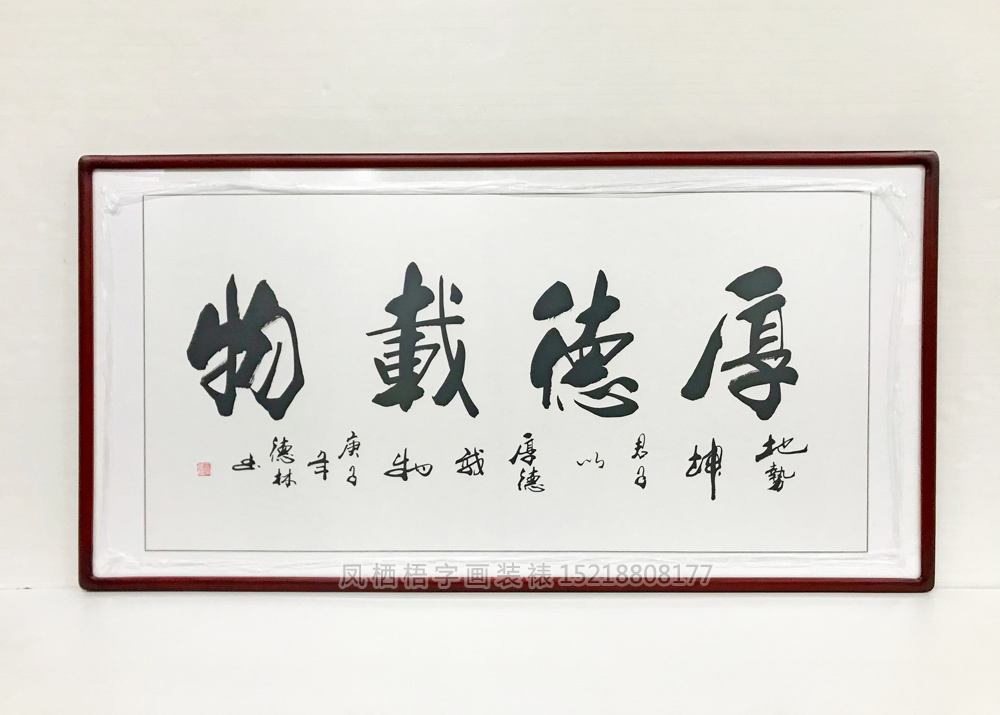 厚德載物
地勢坤君子以厚德载物庚子年德林书
凤栖梧字画装裱15218808177